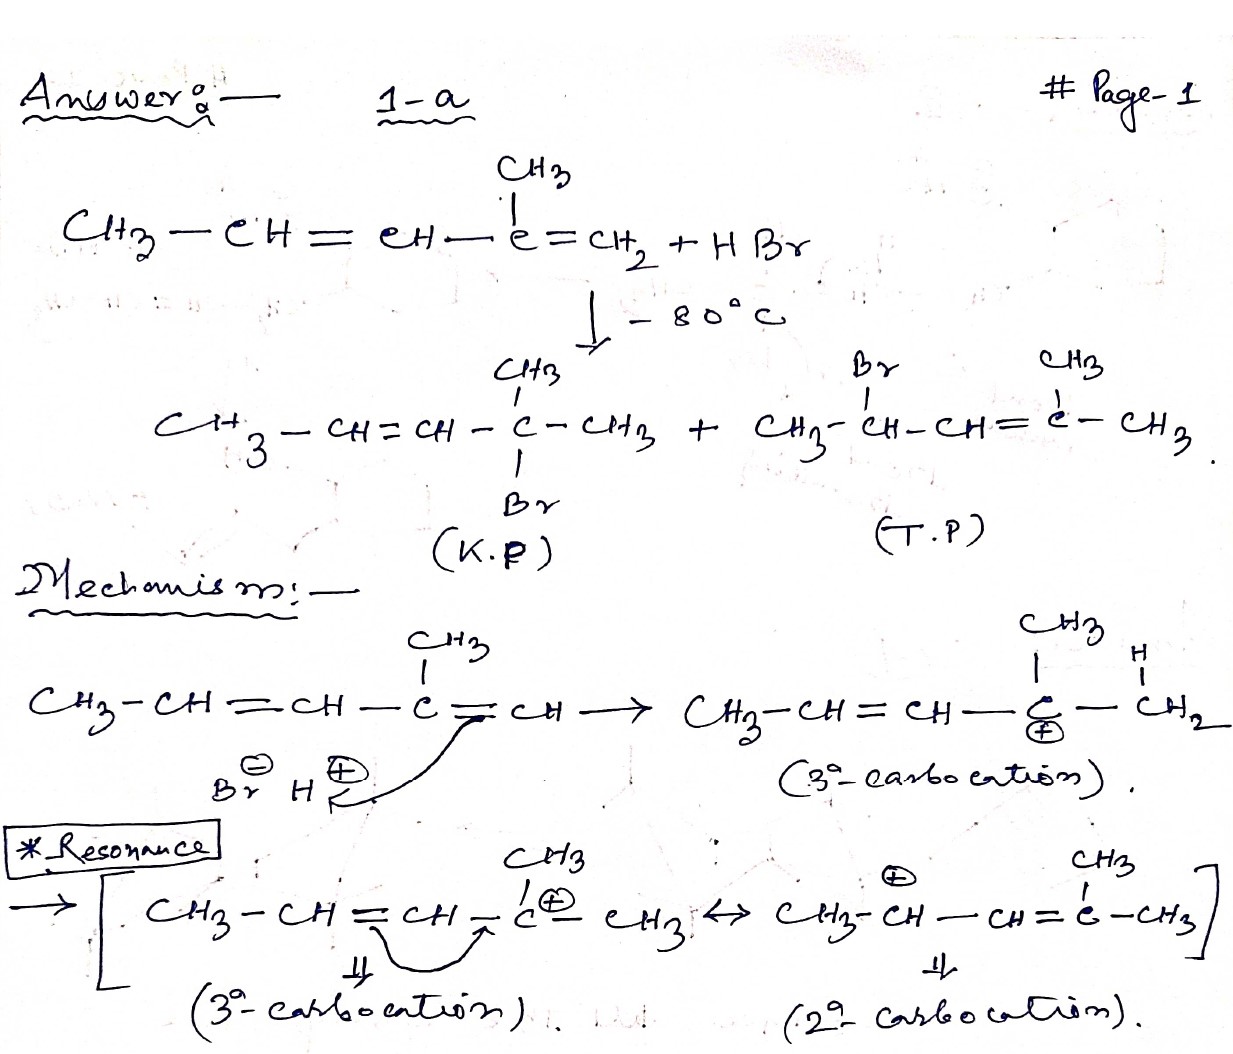 Answer :— 1-a # Page-1
CH3
CH3 — CH = CH — C = CH2 + HBr
↓ - 80°C
CH3 Br CH3
CH3 — CH = CH — C — CH3 + CH3 — CH — CH = C — CH3 .
Br
(K.P) (T.P)
Mechanism :—
CH3 CH3 H
CH3 — CH = CH — C = CH → CH3 — CH = CH — C — CH2
⊕
Br⊖ H⊕ (3°- carbocation) .
* Resonance
CH3 ⊕ CH3
→ [ CH3 — CH = CH — C⊕ — CH3 ↔ CH3 — CH — CH = C — CH3 ]
⇓ ⇓
(3°- carbocation) . (2°- carbocation) .